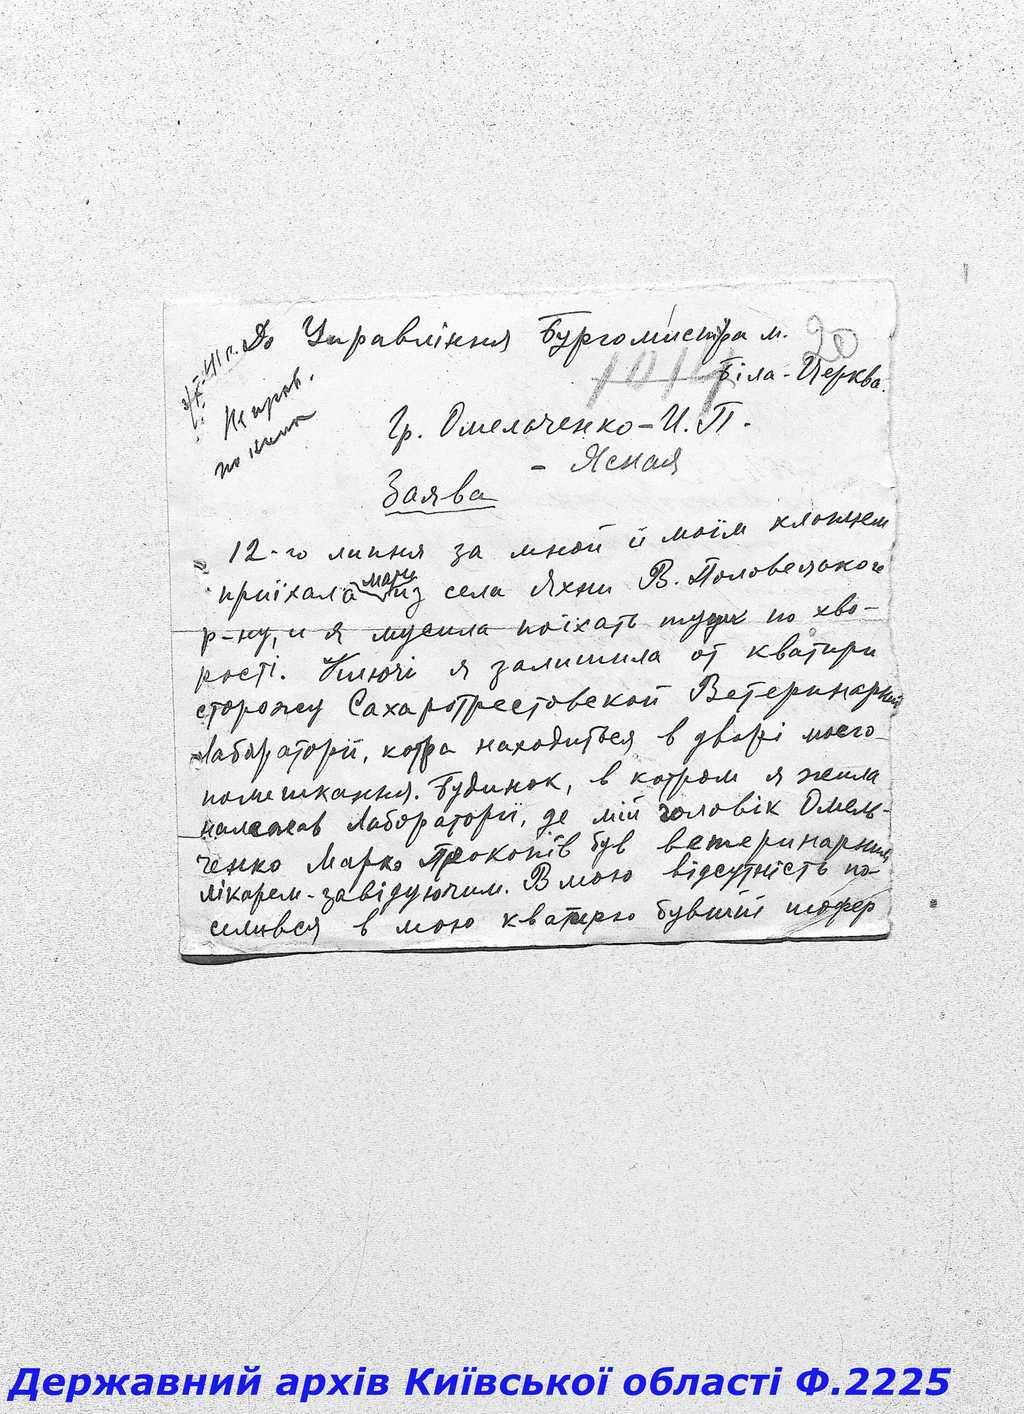 До Управління Бургомистра м.
20
Біла-Церква.
1014
Гр. Омельченко-И.П.
- Ясная
Заява
12-го липня за мной й моїм хлопцем
приїхала мати из села Яхни В. Половецького
р-ну, и я мусила поїхать туди по хво-
рості. Ключі я залишила от кватири
сторожу Сахаротрестовской Ветеринарной
Лабораторії, котра находиться в дворі моєго
помешкання. Будинок, в котром я жила
належав Лабораторії, де мій чоловік Омель-
ченко Марко Прокопів був ветеринарним
лікарем-завідуючим. В мою відсутність по-
селився в мою кватирю бувший шофер
Державний архів Київської області Ф.2225